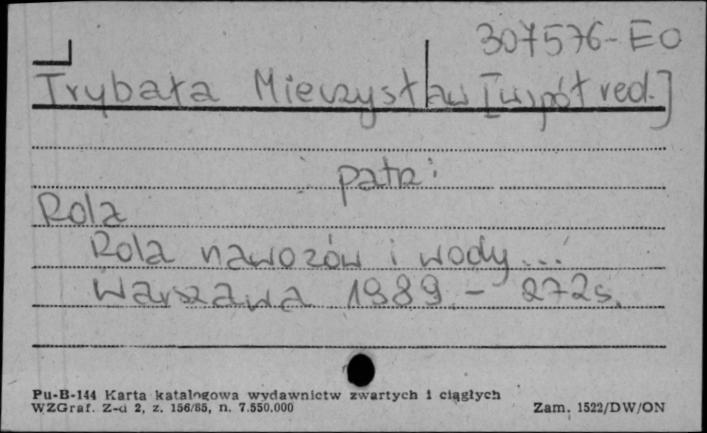 307576-EO
Trybała Mieczysław [współred.]
patrz:
Rola
Rola nawozów i wody...
Warszawa 1989.- 272s.
Pu-B-144 Karta katalogowa wydawnictw zwartych i ciągłych
WZGraf. Z-d 2, z. 156/85, n. 7.550.000
Zam. 1522/DW/ON